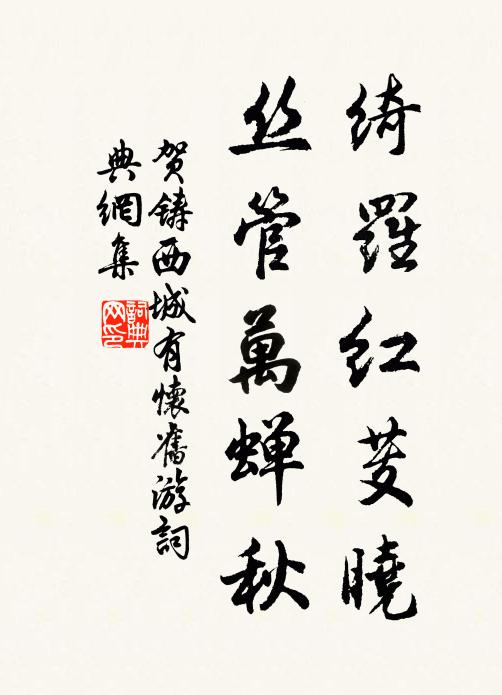 綺羅紅芰曉
丝管萬蝉秋
賀鑄西城有懷舊游詞
典網集
詞典网印